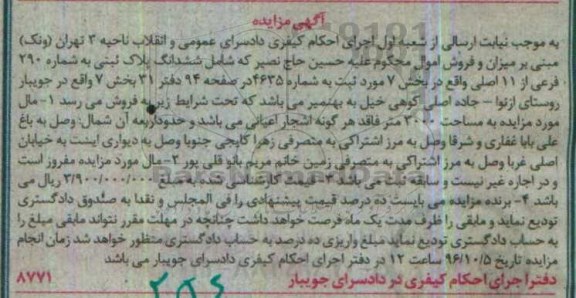 آگهی مزایده
به موجب نیابت ارسالی از شعبه اول اجرای احکام کیفری دادسرای عمومی و انقلاب ناحیه ۳ تهران (ونک)
مبنی بر میزان و فروش اموال محکوم علیه حسین حاج نصیر که شامل ششدانگ پلاک ثبتی به شماره ۲۹۰
فرعی از ۱۱ اصلی واقع در بخش ۷ مورد ثبت به شماره ۴۶۳۵در صفحه ۹۴ دفتر ۳۱ بخش ۷ واقع در جویبار
روستای ازنوا – جاده اصلی کوهی خیل به بهنمیر می باشد که تحت شرایط زیر به فروش می رسد ۱- مال
مورد مزایده به مساحت ۳۰۰۰ متر فاقد هر گونه اشجار اعیانی می باشد و حدود اربعه آن شمال: وصل به باغ
علی بابا غفاری و شرقا وصل به مرز اشتراکی به متصرفی زهرا کاپچی جنوبا وصل به دیواری ایست به خیابان
اصلی غربا وصل به مرز اشتراکی به متصرفی زمین خانم مریم بانو قلی پور ۲-مال مورد مزایده مفروز است
و در اجاره غیر نیست و سابقه ثبت می باشد ۳- قیمت کارشناسی شده به مبلغ ۳/۹۰۰/۰۰۰/۰۰۰ ریال می
باشد ۴- برنده مزایده می بایست ده درصد قیمت پیشنهادی را فی المجلس و نقدا به صندوق دادگستری
تودیع نماید و مابقی را ظرف مدت یک ماه فرصت خواهد داشت چنانچه در مهلت مقرر نتواند مابقی مبلغ را
به حساب دادگستری تودیع نماید مبلغ واریزی ده درصد به حساب دادگستری منظور خواهد شد زمان انجام
مزایده تاریخ ۹۶/۱۰/۵ ساعت ۱۲ در دفتر اجرای احکام کیفری دادسرای جویبار می باشد
دفتر اجرای احکام کیفری در دادسرای جویبار ۸۷۷۱